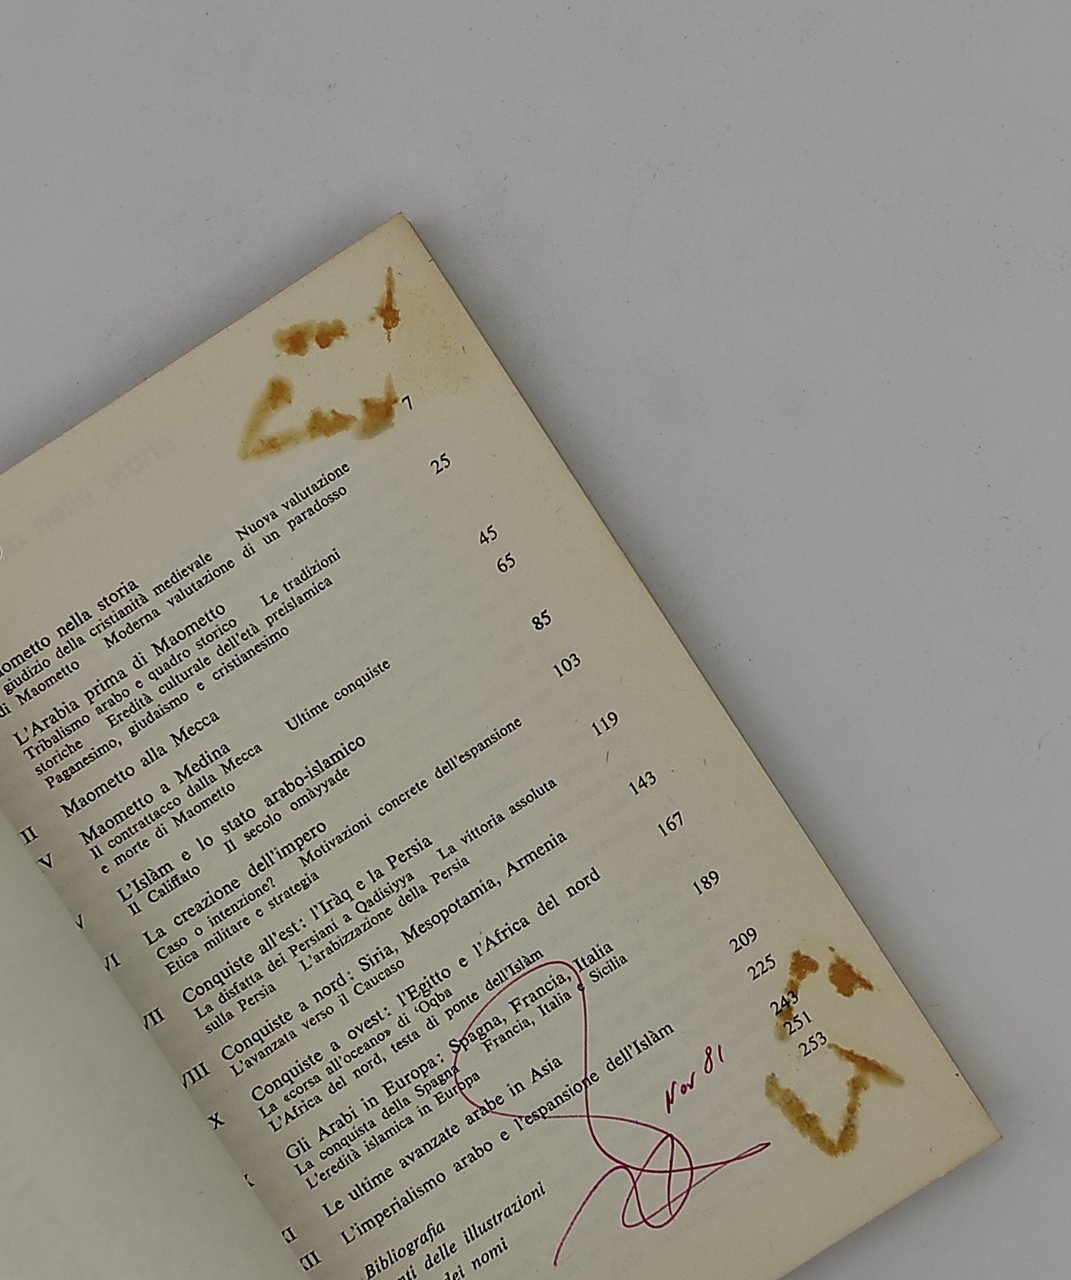 nella storia 7
giudizio della cristianità medievale Nuova valutazione
di Maometto Moderna valutazione di un paradosso
L'Arabia prima di Maometto 25
Tribalismo arabo e quadro storico Le tradizioni
storiche Eredità culturale dell'età preislamica
Paganesimo, giudaismo e cristianesimo
II Maometto alla Mecca 45
V Maometto a Medina 65
Il contrattacco dalla Mecca Ultime conquiste
e morte di Maometto
V L'Islàm e lo stato arabo-islamico 85
Il Califfato Il secolo omàyyade
VI La creazione dell'impero 103
Caso o intenzione? Motivazioni concrete dell'espansione
Etica militare e strategia
VII Conquiste all'est: l'Iràq e la Persia 119
La disfatta dei Persiani a Qadisiyya La vittoria assoluta
sulla Persia L'arabizzazione della Persia
VIII Conquiste a nord: Siria, Mesopotamia, Armenia 143
L'avanzata verso il Caucaso
X Conquiste a ovest: l'Egitto e l'Africa del nord 167
La «corsa all'oceano» di 'Oqba
L'Africa del nord, testa di ponte dell'Islàm
X Gli Arabi in Europa: Spagna, Francia, Italia 189
La conquista della Spagna Francia, Italia e Sicilia
L'eredità islamica in Europa
XI Le ultime avanzate arabe in Asia 209
XII L'imperialismo arabo e l'espansione dell'Islàm 225
Bibliografia 243
delle illustrazioni 251
dei nomi 253
Nov 81